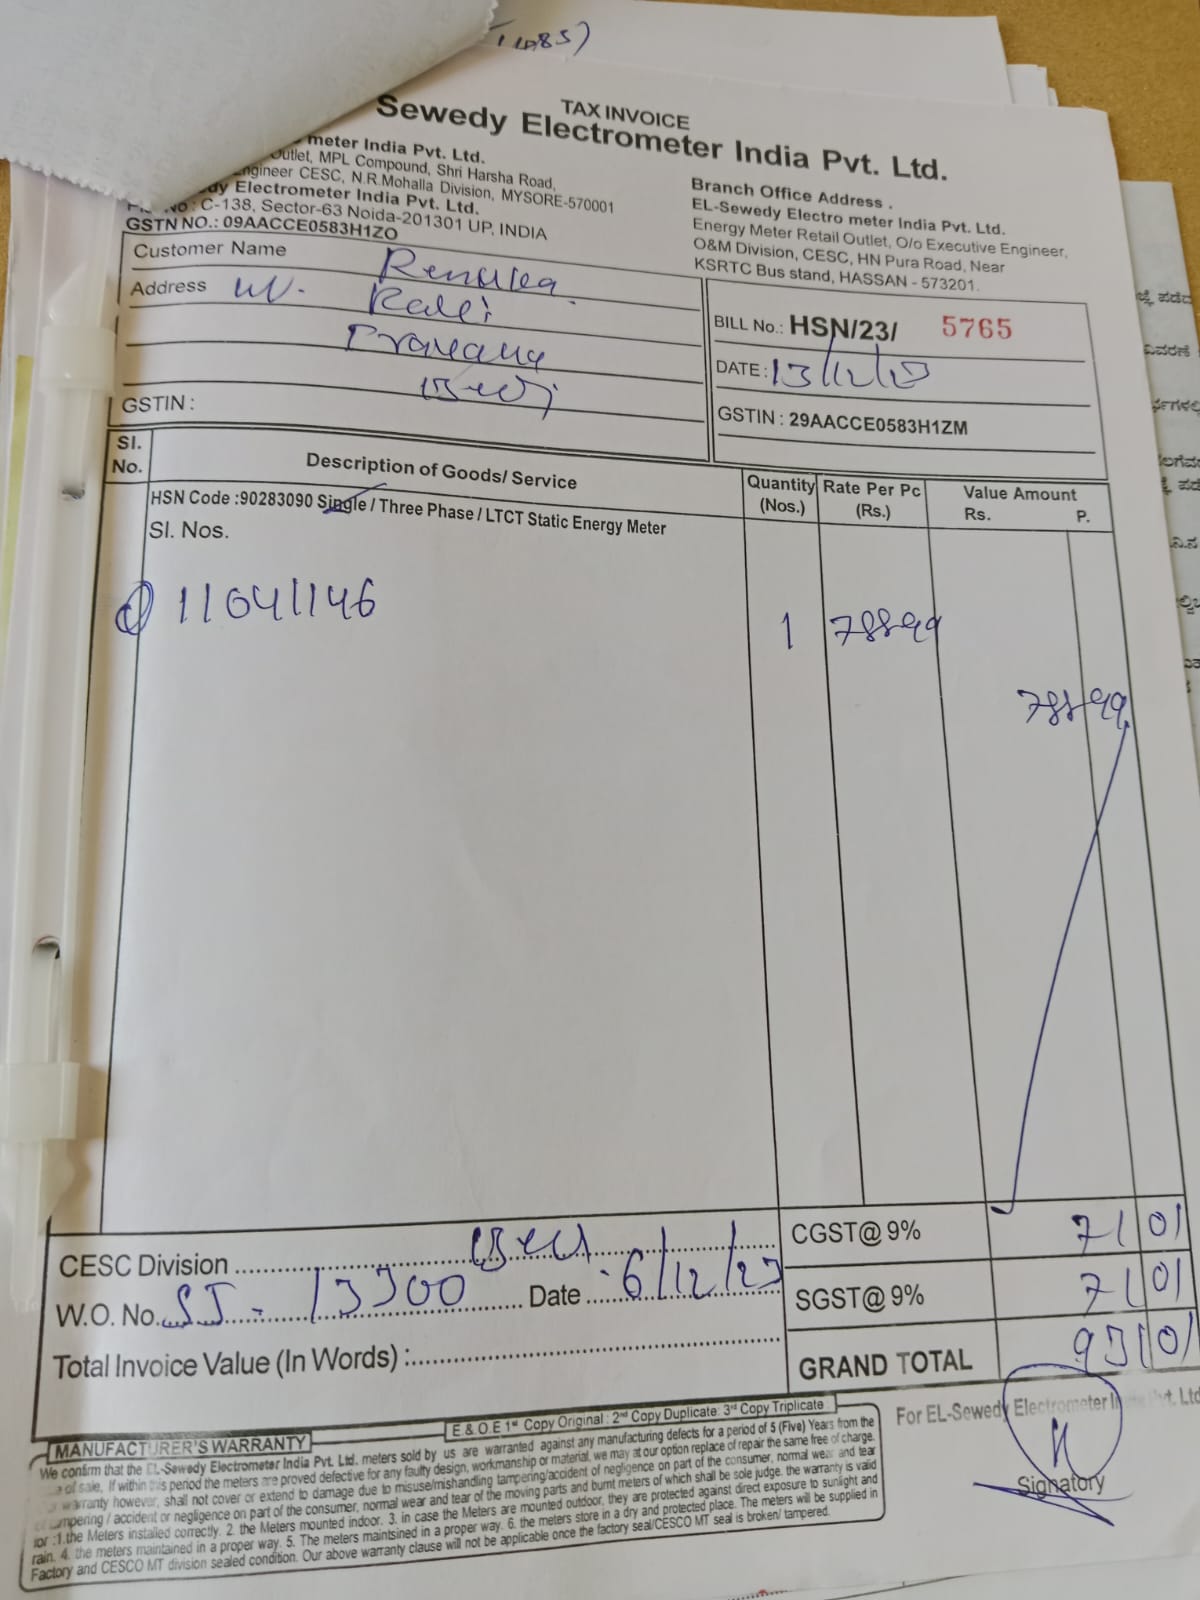 TAX INVOICE
Sewedy Electrometer India Pvt. Ltd.
meter India Pvt. Ltd.
Outlet, MPL Compound, Shri Harsha Road,
ngineer CESC, N.R.Mohalla Division, MYSORE-570001
dy Electrometer India Pvt. Ltd.
No : C-138, Sector-63 Noida-201301 UP, INDIA
GSTN NO.: 09AACCE0583H1ZO
Branch Office Address .
EL-Sewedy Electro meter India Pvt. Ltd.
Energy Meter Retail Outlet, O/o Executive Engineer,
O&M Division, CESC, HN Pura Road, Near
KSRTC Bus stand, HASSAN - 573201.
Customer Name Renuka
Address
GSTIN :
BILL No.: HSN/23/ 5765
DATE : 13/12/23
GSTIN : 29AACCE0583H1ZM
Sl. No. Description of Goods/ Service Quantity (Nos.) Rate Per Pc (Rs.) Value Amount Rs. P.
HSN Code :90283090 Single / Three Phase / LTCT Static Energy Meter
Sl. Nos.
11041146 1 788=99
788=99
CGST@ 9% 71 01
SGST@ 9% 71 01
GRAND TOTAL 931 01
CESC Division
W.O. No. Date 6/12/23
Total Invoice Value (In Words) :
E & O.E 1st Copy Original : 2nd Copy Duplicate: 3rd Copy Triplicate
For EL-Sewedy Electrometer Pvt. Ltd
Signatory
MANUFACTURER'S WARRANTY
We confirm that the EL-Sewedy Electrometer India Pvt. Ltd. meters sold by us are warranted against any manufacturing defects for a period of 5 (Five) Years from the
of sale. If within this period the meters are proved defective for any faulty design, workmanship or material, we may at our option replace of repair the same free of charge.
warranty however, shall not cover or extend to damage due to misuse/mishandling tampering/accident of negligence on part of the consumer, normal wear and tear
tampering / accident or negligence on part of the consumer, normal wear and tear of the moving parts and burnt meters of which shall be sole judge. the warranty is valid
for :1.the Meters installed correctly. 2. the Meters mounted indoor. 3. in case the Meters are mounted outdoor, they are protected against direct exposure to sunlight and
rain. 4. the meters maintained in a proper way. 5. The meters maintsined in a proper way. 6. the meters store in a dry and protected place. The meters will be supplied in
Factory and CESCO MT division sealed condition. Our above warranty clause will not be applicable once the factory seal/CESCO MT seal is broken/ tampered.